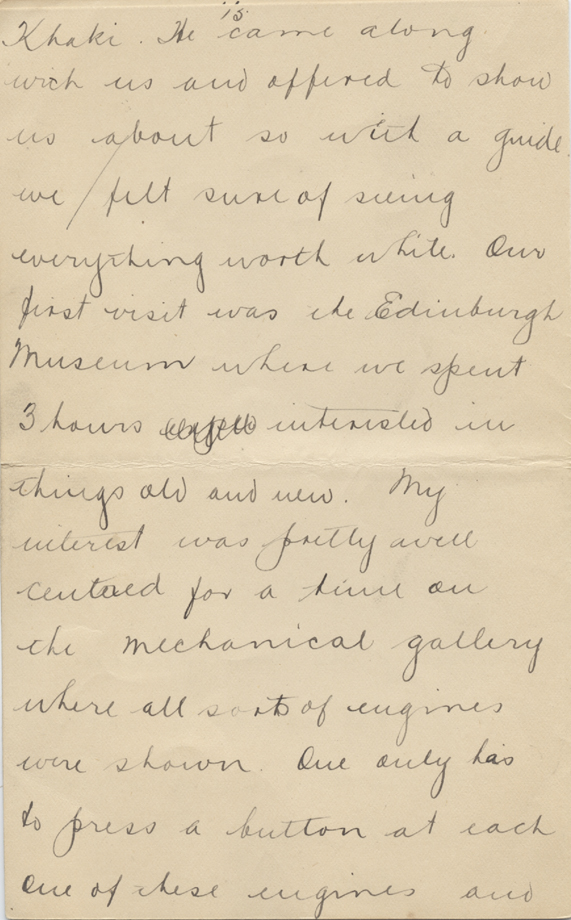 13.
Khaki. He came along
with us and offered to show
us about so with a guide
we felt sure of seeing
everything worth while. Our
first visit was the Edinburgh
Museum where we spent
3 hours interested in
things old and new. My
interest was pretty well
centered for a time on
the mechanical gallery
where all sorts of engines
were shown. One only has
to press a button at each
one of these engines and